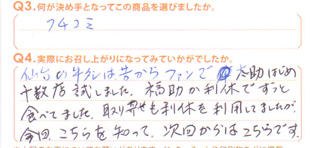 Q3.何が決め手となってこの商品を選びましたか。
クチコミ
Q4.実際にお召し上がりになってみていかがでしたか。
仙台の牛タンは昔からファンで 太助はじめ
十数店試しました。福助か利休でずっと
食べてました。取り寄せも利休を利用してましたが
今回、こちらを知って、次回からはこちらです。